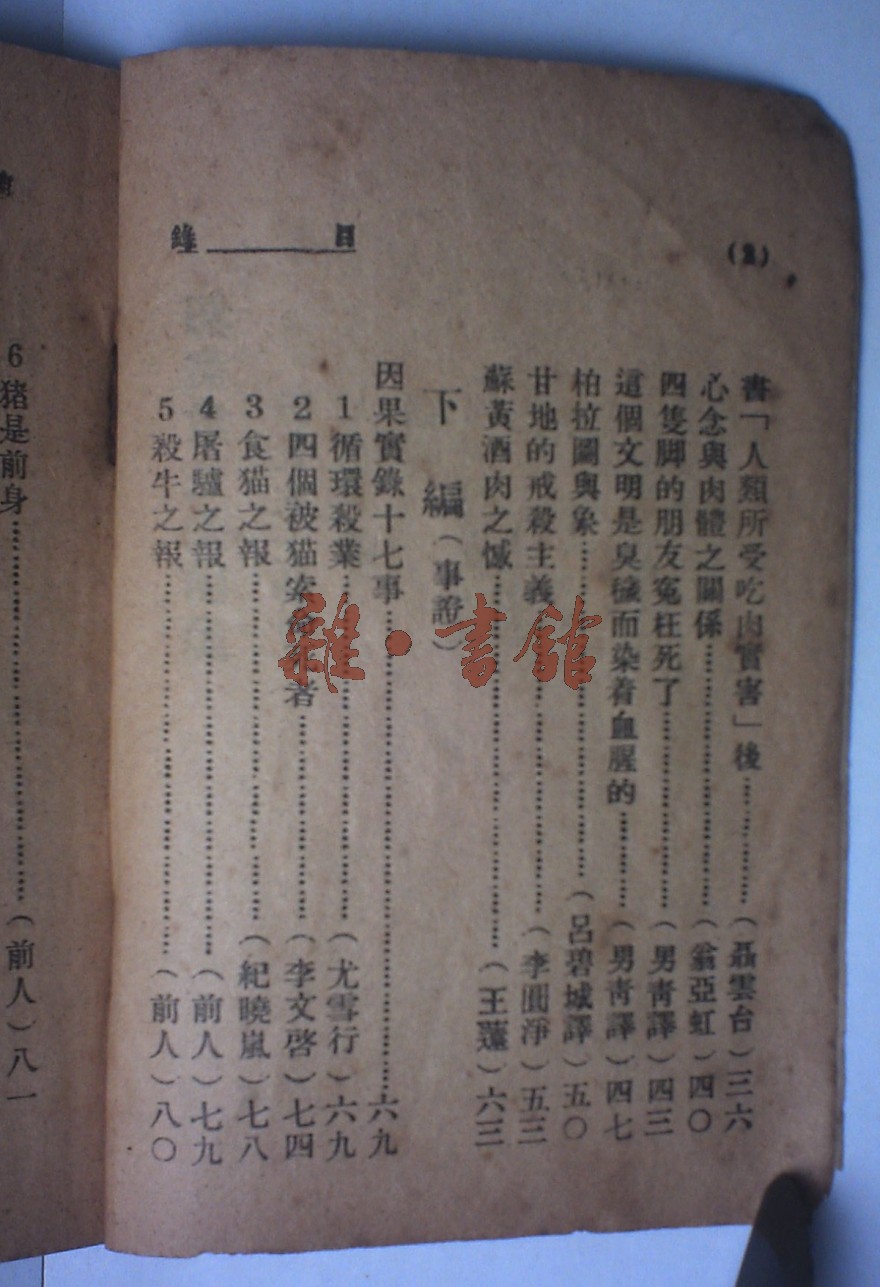 目錄
(2)
書「人類所受吃肉實害」後…………(聶雲台)三六
心念與肉體之關係…………(翁亞虹)四〇
四隻脚的朋友寃枉死了…………(男青譯)四三
這個文明是臭穢而染着血腥的…………(男青譯)四七
柏拉圖與象…………(呂碧城譯)五〇
甘地的戒殺主義…………(李圓淨)五三
蘇黃酒肉之憾…………(王蓮)六三
下編(事證)
因果實錄十七事…………六九
1循環殺業…………(尤雪行)六九
2四個被猫索者…………(李文啓)七四
3食猫之報…………(紀曉嵐)七八
4屠驢之報…………(前人)七九
5殺牛之報…………(前人)八〇
6猪是前身…………(前人)八一
雜·書館